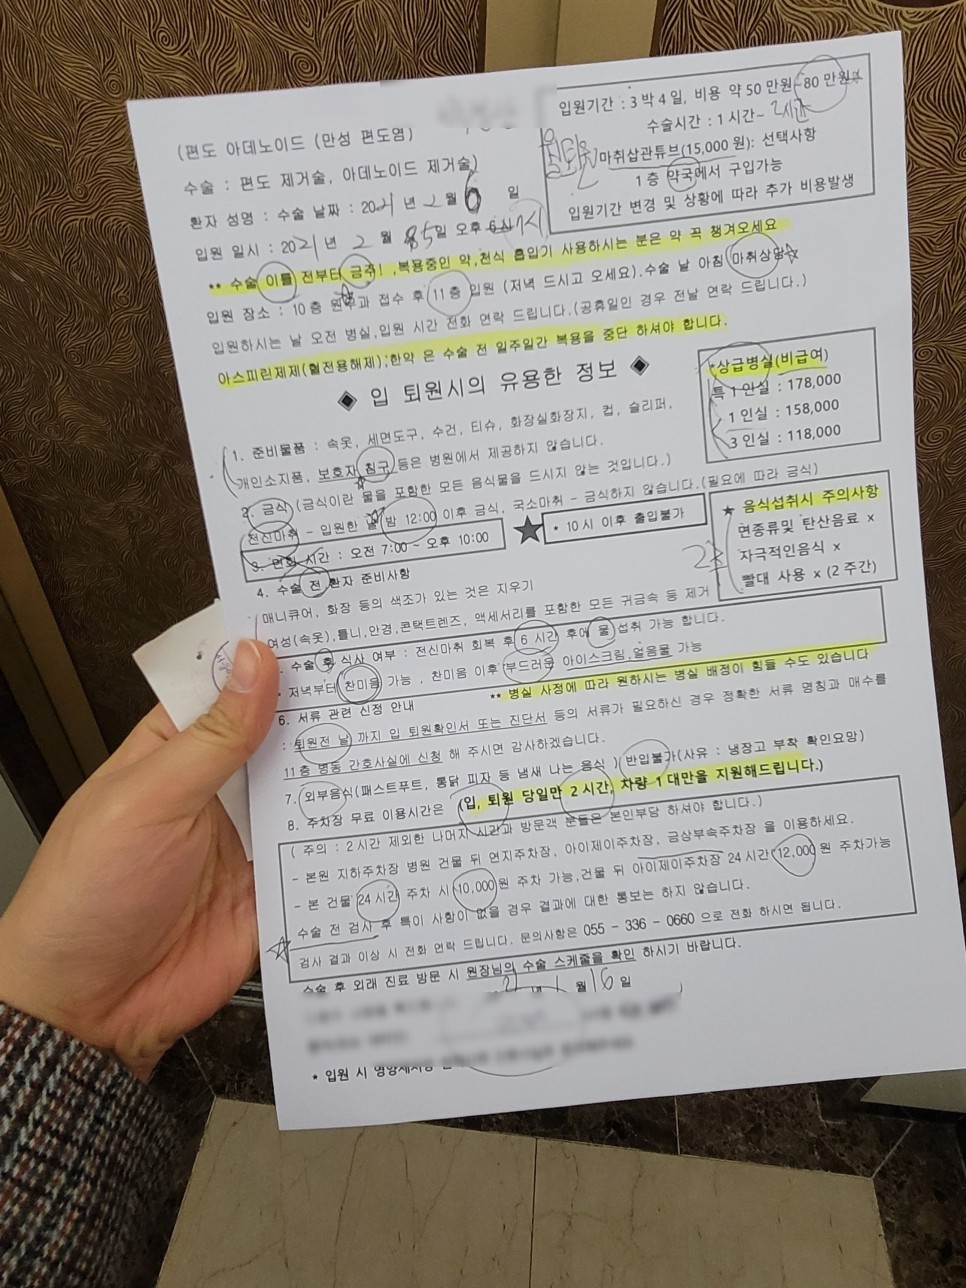 (편도 아데노이드 (만성 편도염)
수술 : 편도 제거술, 아데노이드 제거술)
환자 성명 : 수술 날짜 : 2021 년 2 월 6 일
입원 일시 : 2021 년 2 월 5일 오후
입원기간 : 3 박 4 일, 비용 약 50 만원-80 만원
수술시간 : 1 시간~ 2시간
마취삽관튜브(15,000 원): 선택사항
1 층 약국에서 구입가능
입원기간 변경 및 상황에 따라 추가 비용발생
** 수술 이틀 전부터 금주! ,복용중인 약,천식 흡입기 사용하시는 분은 약 꼭 챙겨오세요
입원 장소 : 10 층 원무과 접수 후 11 층 입원 (저녁 드시고 오세요).수술 날 아침 마취상담☆
입원하시는 날 오전 병실,입원 시간 전화 연락 드립니다.(공휴일인 경우 전날 연락 드립니다.)
아스피린제제(혈전용해제);한약 은 수술 전 일주일간 복용을 중단 하셔야 합니다.
◆ 입 퇴원시의 유용한 정보 ◆
*상급병실(비급여)
특 1 인실 : 178,000
1 인실 : 158,000
3 인실 : 118,000
1. 준비물품 : 속옷, 세면도구, 수건, 티슈, 화장실화장지, 컵, 슬리퍼,
개인소지품, 보호자 침구 등은 병원에서 제공하지 않습니다.
2. 금식 (금식이란 물을 포함한 모든 음식물을 드시지 않는 것입니다.)
전신마취 – 입원한 날 밤 12:00 이후 금식, 국소마취 – 금식하지 않습니다.(필요에 따라 금식)
3. 면회 시간 : 오전 7:00 ~ 오후 10:00
★ * 10 시 이후 출입불가
★ 음식섭취시 주의사항
면종류및 탄산음료 x
자극적인음식 x
빨대 사용 x (2 주간)
2주
4. 수술 전 환자 준비사항
매니큐어, 화장 등의 색조가 있는 것은 지우기
여성(속옷),틀니,안경,콘택트렌즈, 액세서리를 포함한 모든 귀금속 등 제거
수술 후 식사 여부 : 전신마취 회복 후 6 시간 후에 물 섭취 가능 합니다.
* 저녁부터 찬미음 가능 , 찬미음 이후 부드러운 아이스크림,얼음물 가능
** 병실 사정에 따라 원하시는 병실 배정이 힘들 수도 있습니다
6. 서류 관련 신정 안내
: 퇴원전 날 까지 입 퇴원확인서 또는 진단서 등의 서류가 필요하신 경우 정확한 서류 명칭과 매수를
11 층 병동 간호사실에 신청 해 주시면 감사하겠습니다.
7. 외부음식(패스트푸트, 통닭 피자 등 냄새 나는 음식 ) 반입불가(사유 : 냉장고 부착 확인요망)
8. 주차장 무료 이용시간은 (입, 퇴원 당일만 2 시간, 차량 1 대만을 지원해드립니다.)
( 주의 : 2 시간 제외한 나머지 시간과 방문객 분들은 본인부담 하셔야 합니다.)
– 본원 지하주차장 병원 건물 뒤 연지주차장, 아이제이주차장, 금상부속주차장 을 이용하세요.
– 본 건물 24 시간 주차 시 10,000 원 주차 가능,건물 뒤 아이제이주차장 24 시간 12,000 원 주차가능
수술 전 검사 후 특이 사항이 없을 경우 결과에 대한 통보는 하지 않습니다.
검사 결과 이상 시 전화 연락 드립니다. 문의사항은 055 – 336 – 0660 으로 전화 하시면 됩니다.
수술 후 외래 진료 방문 시 원장님의 수술 스케줄을 확인 하시기 바랍니다.
21 년 1 월 16 일
* 입원 시